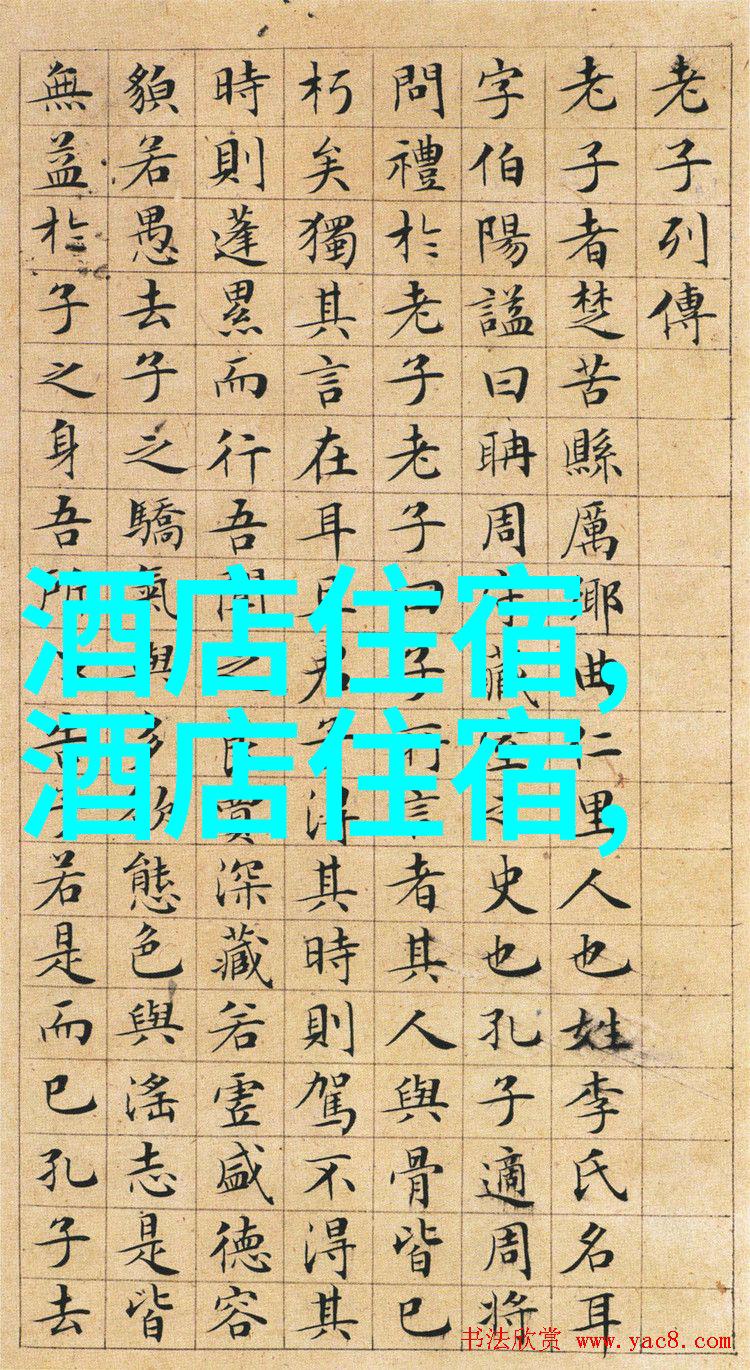 老子列傳
老子者楚苦縣厲鄉曲仁里人也姓李氏名耳
字伯陽謚曰聃周守藏室之史也孔子適周將
問禮於老子老子曰子所言者其人與骨皆已
朽矣獨其言在耳且君子得其時則駕不得其
時則蓬累而行吾聞之良賈深藏若虛盛德容
貌若愚去子之驕氣與多欲態色與淫志是皆
無益於子之身吾所以告子若是而已孔子去
酒店住宿,
酒店住宿,
书法欣赏 www.yac8.com